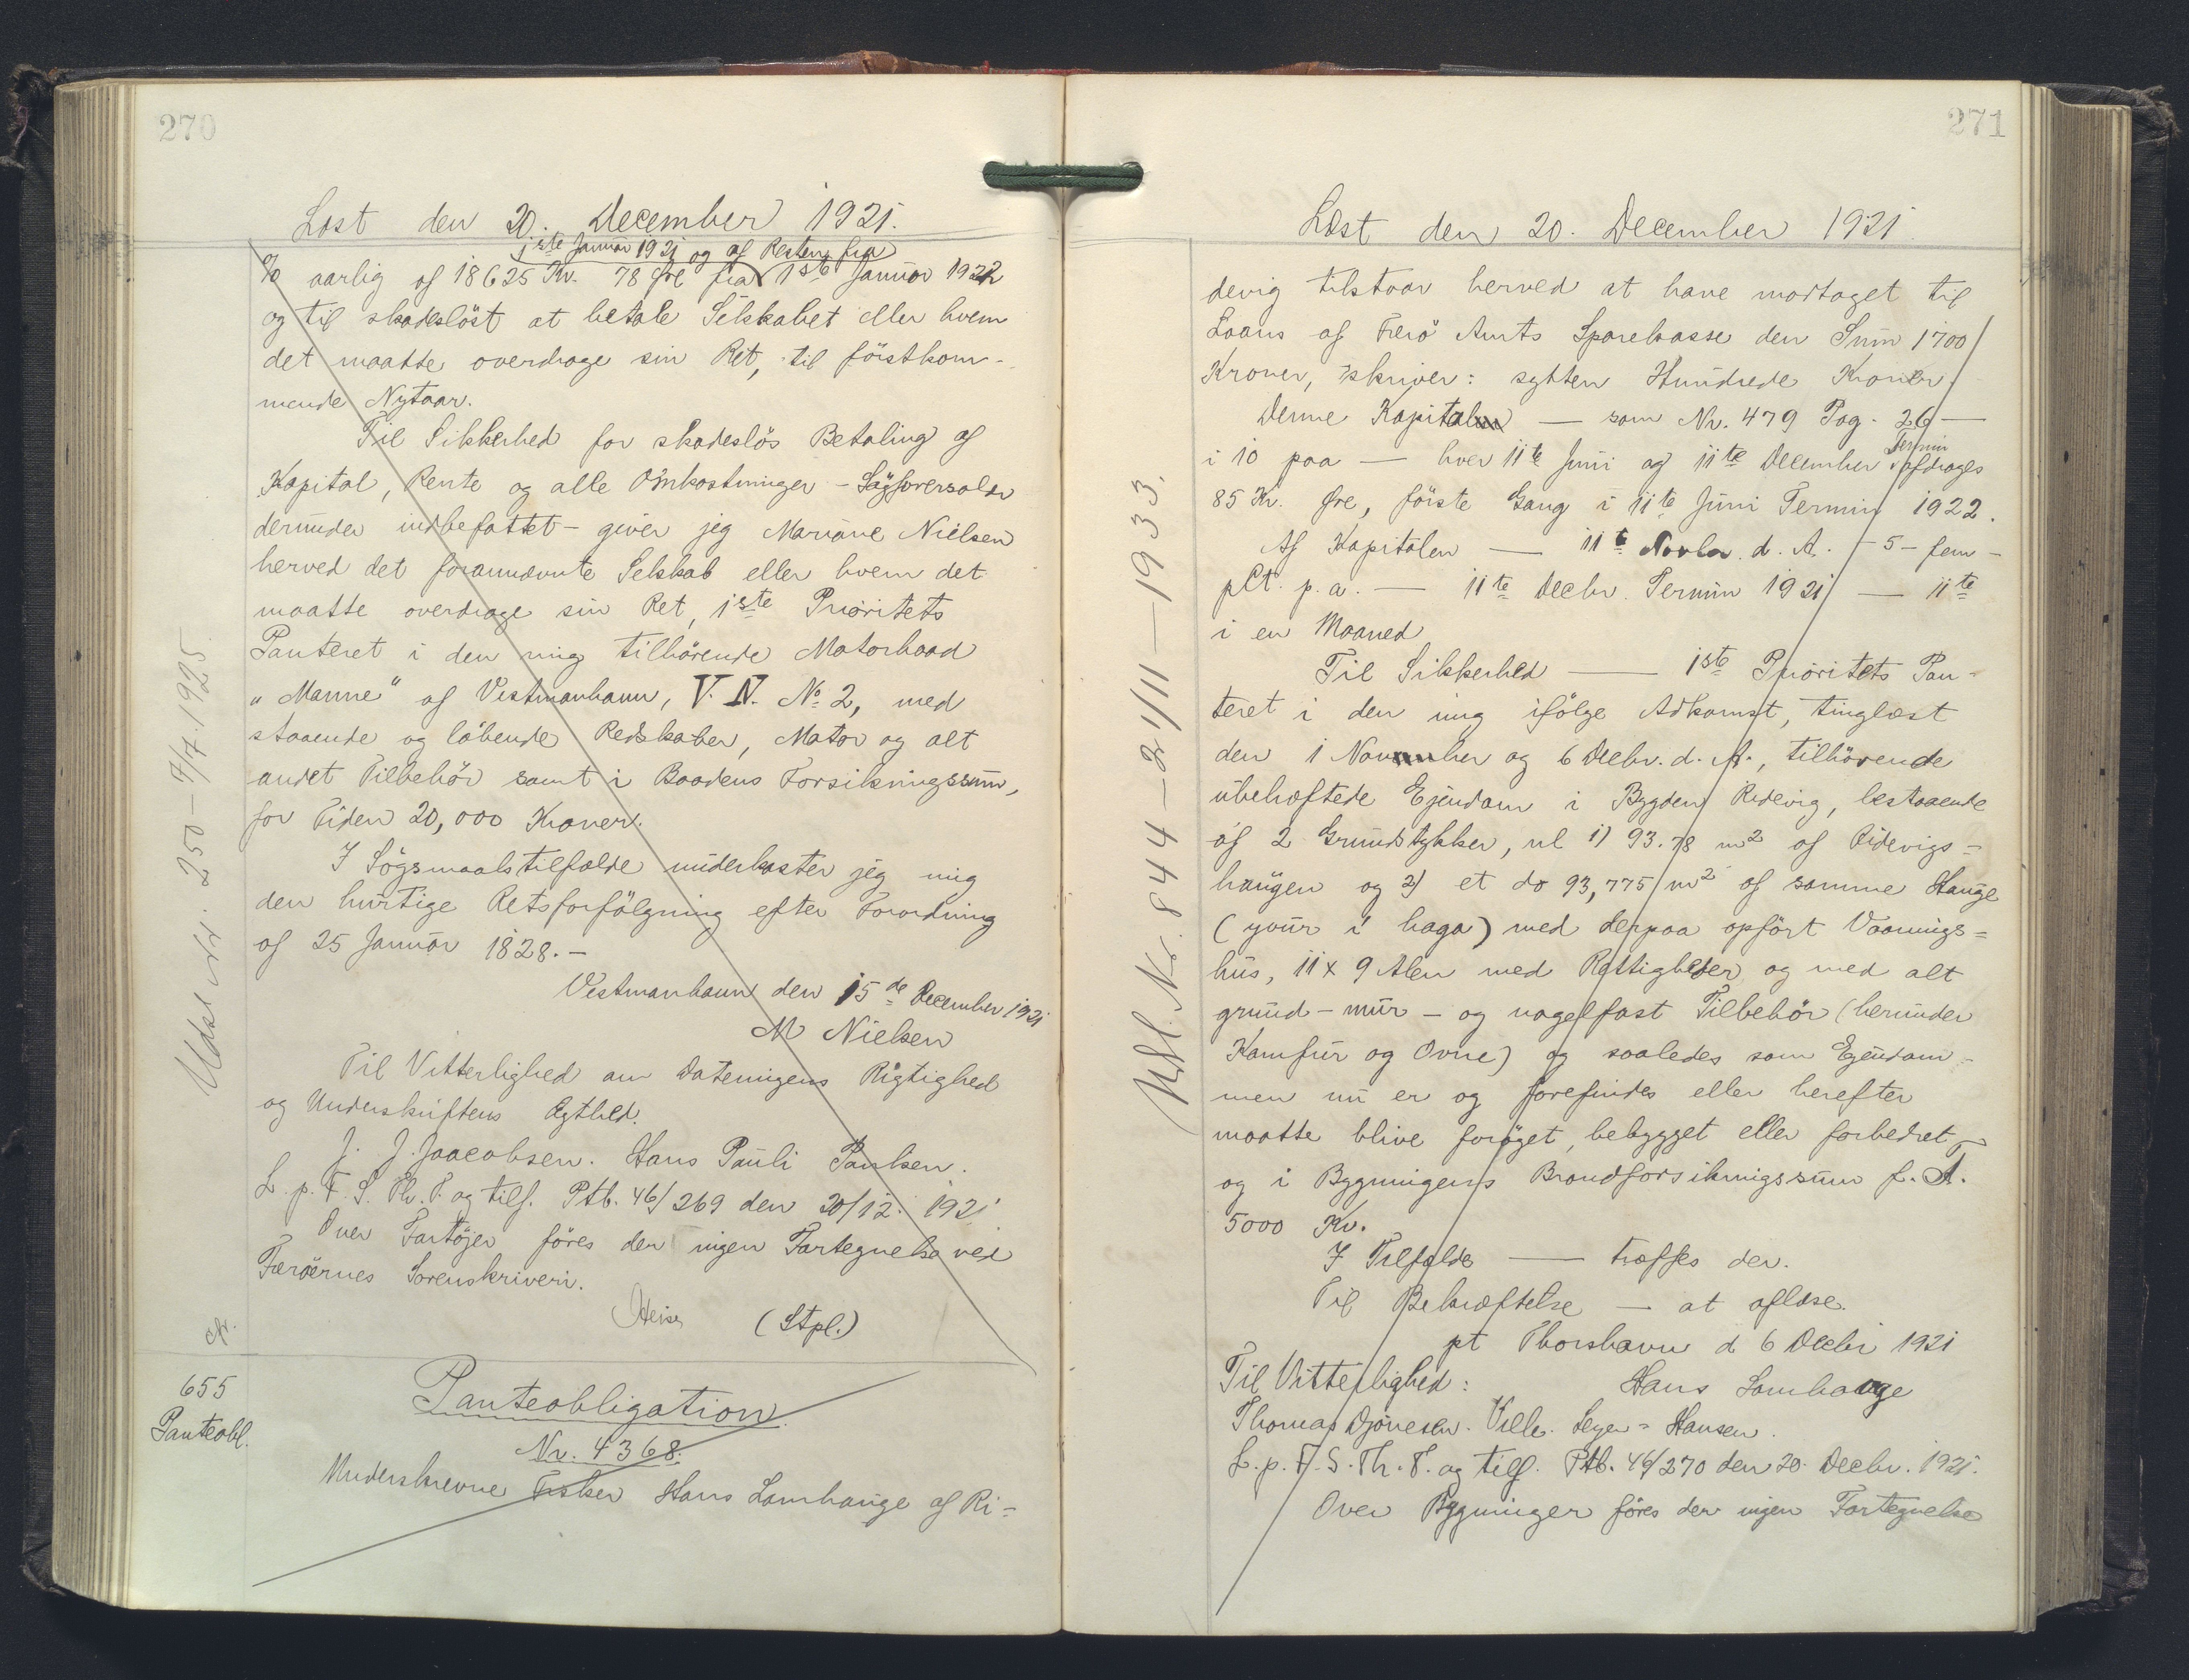 270
Læst den 20. December 1921.
1ste Januar 1921 og af Resten fra
% aarlig af 18625 Kr. 78 Øre fra 1ste Januar 1922
og til skadesløst at betale Selskabet eller hvem
det maatte overdrage sin Ret, til førstkom-
mende Nytaar.
Til Sikkerhed for skadesløs Betaling af
Kapital, Rente og alle Omkostninger - Sagførersalær
derunder indbefattet - giver jeg Mariane Nielsen
herved det forannævnte Selskab eller hvem det
maatte overdrage sin Ret, 1ste Prioritets
Panteret i den mig tilhørende Motorbaad
"Manne" af Vestmanhavn, V.N. No 2, med
staaende og løbende Redskaber, Motor og alt
andet Tilbehør samt i Baadens Forsikringssum,
for Tiden 20,000 Kroner.
I Søgsmaalstilfælde underkaster jeg mig
den hurtige Retsforfølgning efter Forordning
af 25 Januar 1828.-
Vestmanhavn den 15de December 1921
M Nielsen
Til Vitterlighed om Dateringens Rigtighed
og Underskriftens Ægthed.
J. J. Jaacobsen. Hans Pauli Paulsen.
L. p. F. S. Th. T. og tilf. Ptb. 46/269 den 20/12. 1921
Over Fartøjer føres der ingen Fortegnelse ved
Færøernes Sorenskriveri.
(Stpl.)
Udsl. Nr. 250 - 7/7. 1925.
655
Panteobl.
Panteobligation.
Nr. 4368.
Underskrevne Fisker Hans Lamhauge af Ri-
271
Læst den 20. December 1921
devig tilstaar herved at have modtaget til
Laans af Færø Amts Sparekasse den Sum 1700
Kroner, skriver: sytten Hundrede Kroner.
Denne Kapital — som Nr. 479 Pag. 26 —
i 10 paa — hver 11te Juni og 11te December Termin afdrages
85 Kr. Øre, første Gang i 11te Juni Termin 1922.
Af Kapitalen — 11te Novbr. d. A. - 5 - fem -
pCt. p. a. — 11te Decbr. Termin 1921 — 11te
i en Maaned
Til Sikkerhed — 1ste Prioritets Pan-
teret i den mig ifølge Adkomst, tinglæst
den 1 November og 6 Decbr. d. A., tilhørende
ubehæftede Ejendom i Bygden Ridevig, bestaaende
af 2 Grundstykker, nl 1) 93.78 m2 af Ridevigs-
haugen og 2) et do 93,775 m2 af samme Hauge
(yvur i haga) med derpaa opført Vaanings-
hus, 11 x 9 Alen med Rettigheder og med alt
grund - mur - og nagelfast Tilbehør (herunder
Komfur og Ovne) og saaledes som Ejendom-
men nu er og forefindes eller herefter
maatte blive forøget, bebygget eller forbedret,
og i Bygningens Brandforsikringssum f. A.
5000 Kr.
I Tilfælde — træffes der.
Til Bekræftelse — at aflæse.
pt Thorshavn d 6 Decbr 1921
Til Vitterlighed: Hans Lamhauge
Thomas Djonesen. Vilh. Leyer-Hansen.
L. p. F. S. Th. T. og tilf. Ptb. 46/270 den 20. Decbr. 1921.
Over Bygninger føres der ingen Fortegnelse
Udsl. Nr. 844 - 21/11 - 1933.